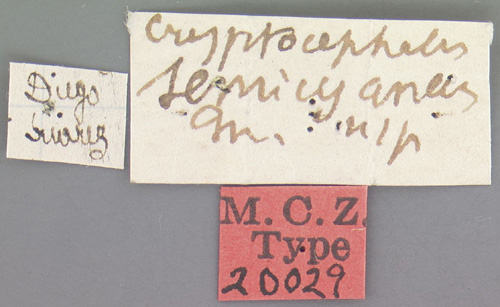 Diego
Suarez
Cryptocephalus
semicyaneus
m. n/p
M.C.Z.
Type
20029